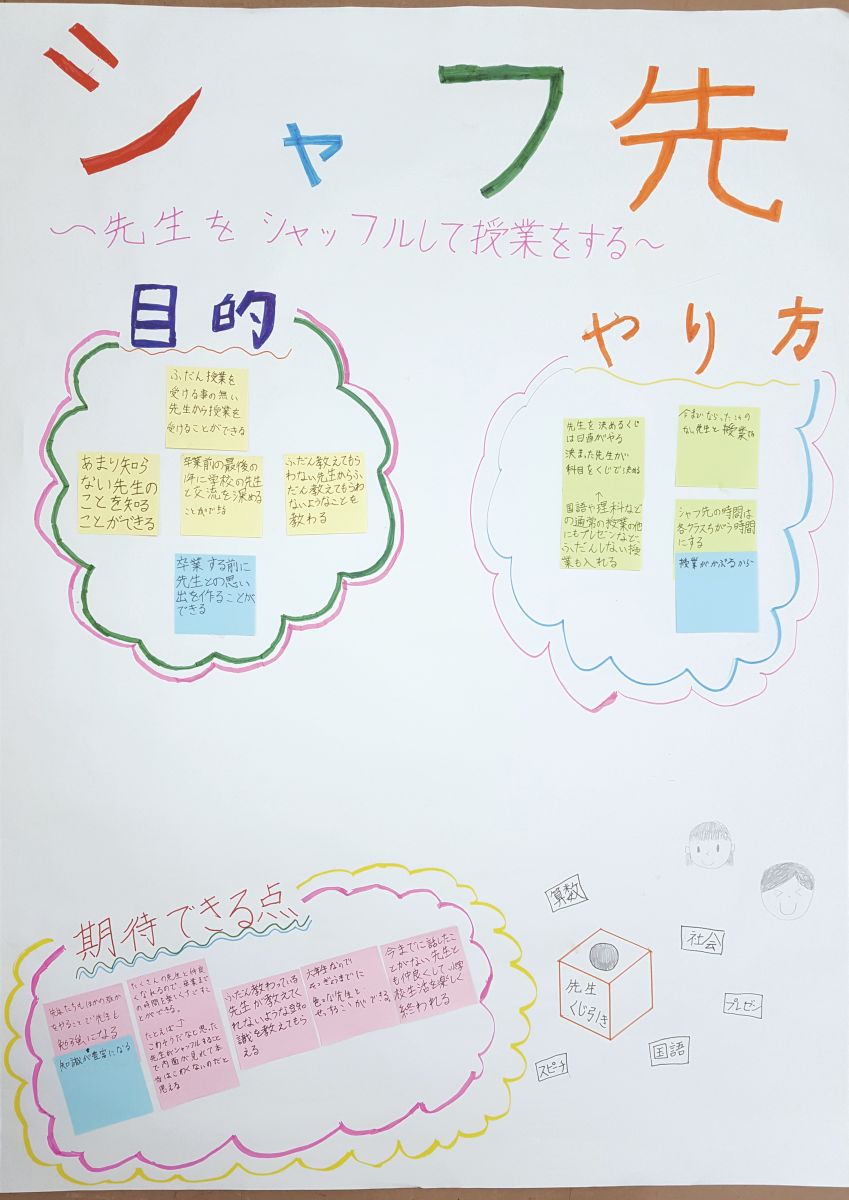 シャフ先
〜先生をシャッフルして授業をする〜
目的
ふだん授業を
受ける事の無い
先生から授業を
受けることができる
あまり知ら
ない先生の
ことを知る
ことができる
卒業前の最後の
1年に学校の先生
と交流を深める
ことができる
ふだん教えてもら
わない先生からふ
だん教えてもらわ
ないようなことを
教わる
卒業する前に
先生との思い
出を作ることが
できる
やり方
先生を決めるくじ
は日直がやる
決まった先生が
科目をくじで決める
↑
国語や理科など
の通常の授業の他
にもプレゼンなど、
ふだんしない授
業も入れる
今までならったことの
ない先生と授業する
シャフ先の時間は
各クラスちがう時間
にする
授業がかぶるから
期待できる点
先生たちもほかの教科
をやることで先生も
勉強になる
知識が豊富になる
たくさんの先生と仲良
くなれるので、卒業まで
の時間を楽しくすごす
ことができる。
たとえば
こわそうだなと思った
先生がシャッフルすること
で内面が見れて本
当はこわくないのだと
思える
ふだん教わっている
先生が教えてく
れないような知
識を教えてもら
える
色々な先生と
今までに話したこ
とがない先生と
も仲良くして小学
校生活を楽しく
終われる
算数
社会
先生
くじ引き
プレゼン
国語
スピーチ